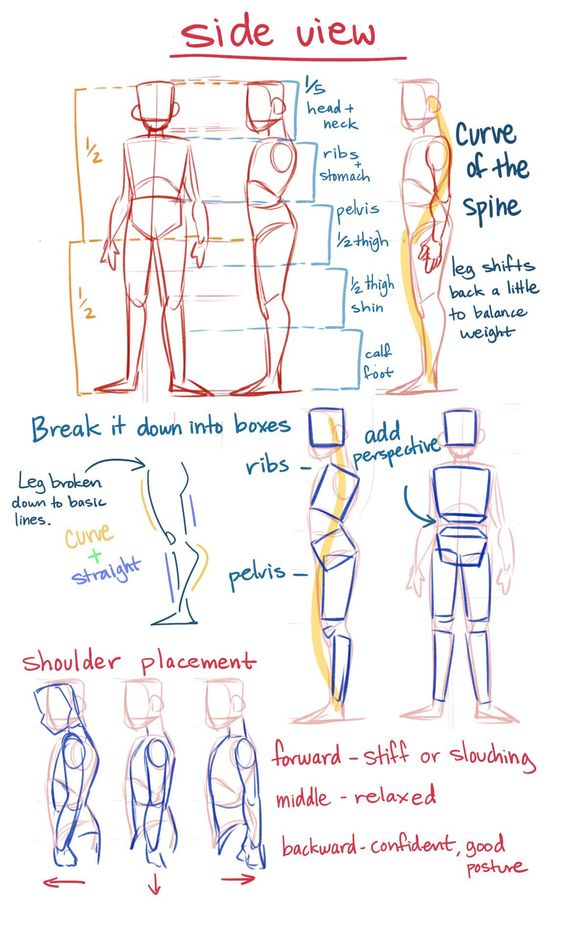 side view
1/5
head +
neck
1/2
ribs
+
stomach
pelvis
1/2 thigh
1/2
1/2 thigh
shin
calf
foot
Curve
of the
spine
leg shifts
back a little
to balance
weight
Break it down into boxes
add
perspective
ribs –
Leg broken
down to basic
lines.
Curve
+
straight
pelvis –
shoulder placement
forward – stiff or slouching
middle - relaxed
backward - confident, good
posture